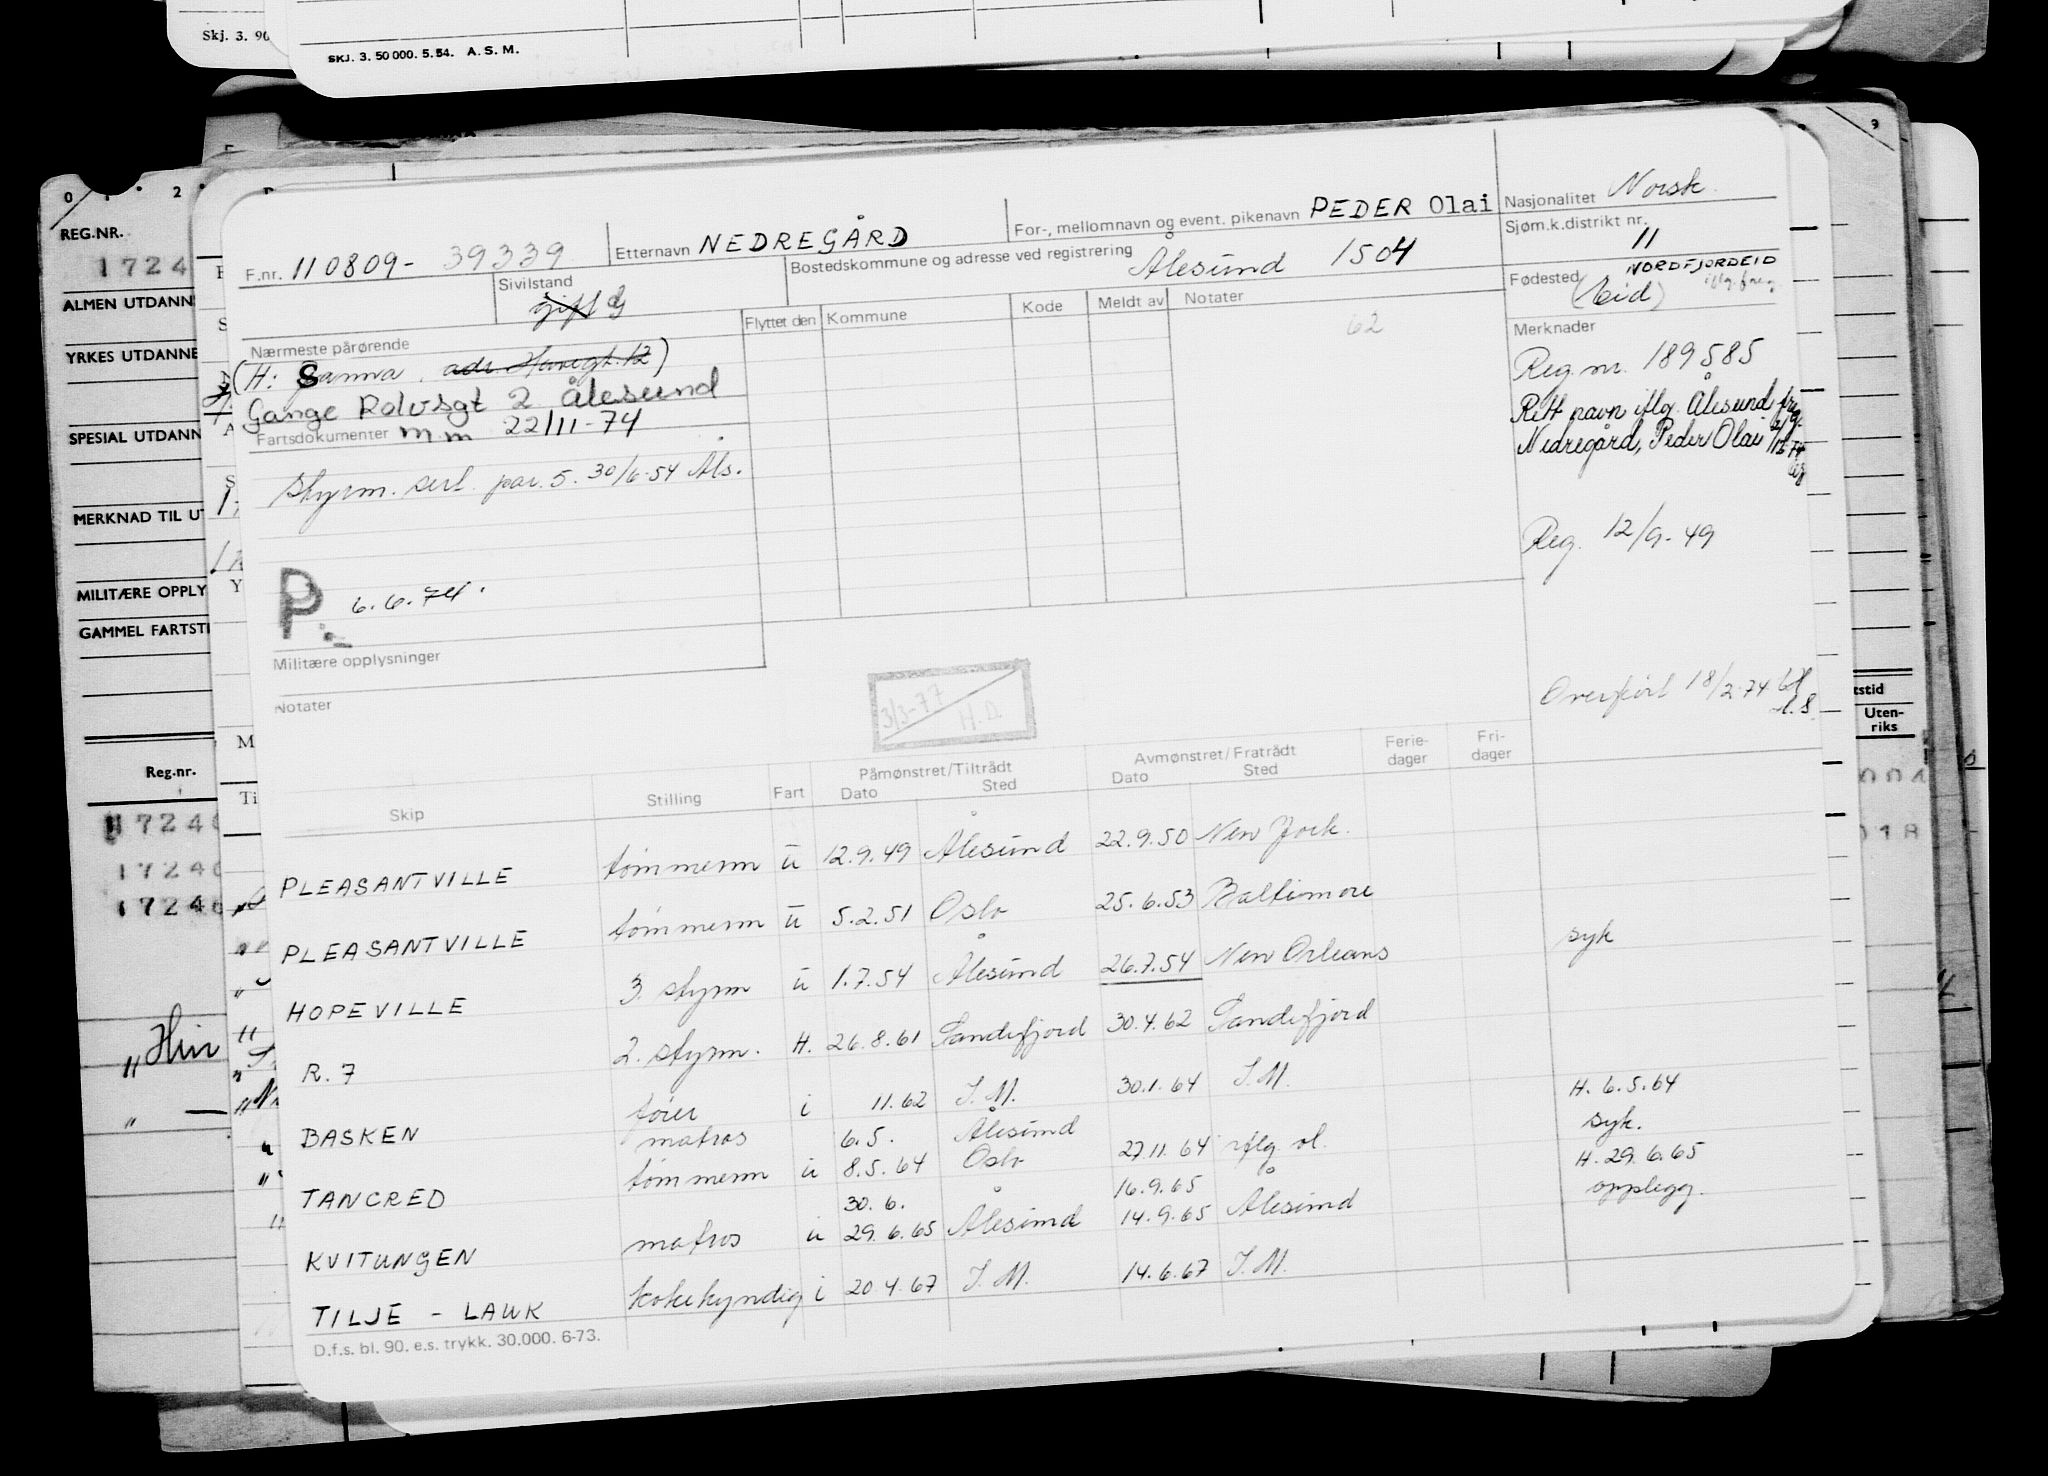 Skj. 3. 90
SKJ. 3. 50 000. 5.54. A. S. M.
0 1 2
9
REG.NR.
1724
ALMEN UTDANN
YRKES UTDANNE
SPESIAL UTDANN
MERKNAD TIL UT
MILITÆRE OPPLY
GAMMEL FARTSTI
Reg.nr.
17240
17240
17240
„Hin
F.nr. 110809- 39339
Etternavn NEDREGÅRD
For-, mellomnavn og event. pikenavn PEDER Olai
Nasjonalitet Norsk
Sjøm.k.distrikt nr.
11
Sivilstand
gift G
Bostedskommune og adresse ved registrering
Ålesund 1504
Fødested NORDFJORDEID
(Eid) iflg. freg.
Nærmeste pårørende
(H: Sanna, adr. Havegt. 12)
Gange Rolvsgt 2 Ålesund
Flyttet den Kommune Kode Meldt av Notater
62
Merknader
Reg nr. 189585
Rett navn iflg. Ålesund freg.
Nedregård, Peder Olai
Fartsdokumenter m.m 22/11-74
Styrm. sert. par. 5. 30/6-54 Åls.
Reg. 12/9-49
P. 6.6.74.
Militære opplysninger
Notater
3/3-77
H.D.
Overført 18/2-74
Skip Stilling Fart Påmønstret/Tiltrådt Dato Sted Avmønstret/Fratrådt Dato Sted Ferie-dager Fri-dager
PLEASANTVILLE tømmerm u 12.9.49 Ålesund 22.9.50 New York.
PLEASANTVILLE tømmerm u 5.2.51 Oslo 25.6.53 Baltimore
HOPEVILLE 3. styrm u 1.7.54 Ålesund 26.7.54 New Orleans syk
R.7 2. styrm. H. 26.8.61 Sandefjord 30.4.62 Sandefjord
BASKEN fører i 11.62 I.M. 30.1.64 I.M.
matros 6.5. Ålesund H. 6.5.64
TANCRED tømmerm u 8.5.64 Oslo 27.11.64 iflg ol. syk.
30.6. 16.9.65 H. 29.6.65
KVITUNGEN matros u 29.6.65 Ålesund 14.9.65 Ålesund opplegg.
TILJE - LAUK kokekyndig i 20.4.67 I.M. 14.6.67 I.M.
D.f.s. bl. 90. e.s. trykk. 30.000. 6-73.
tstid
Uten-
riks